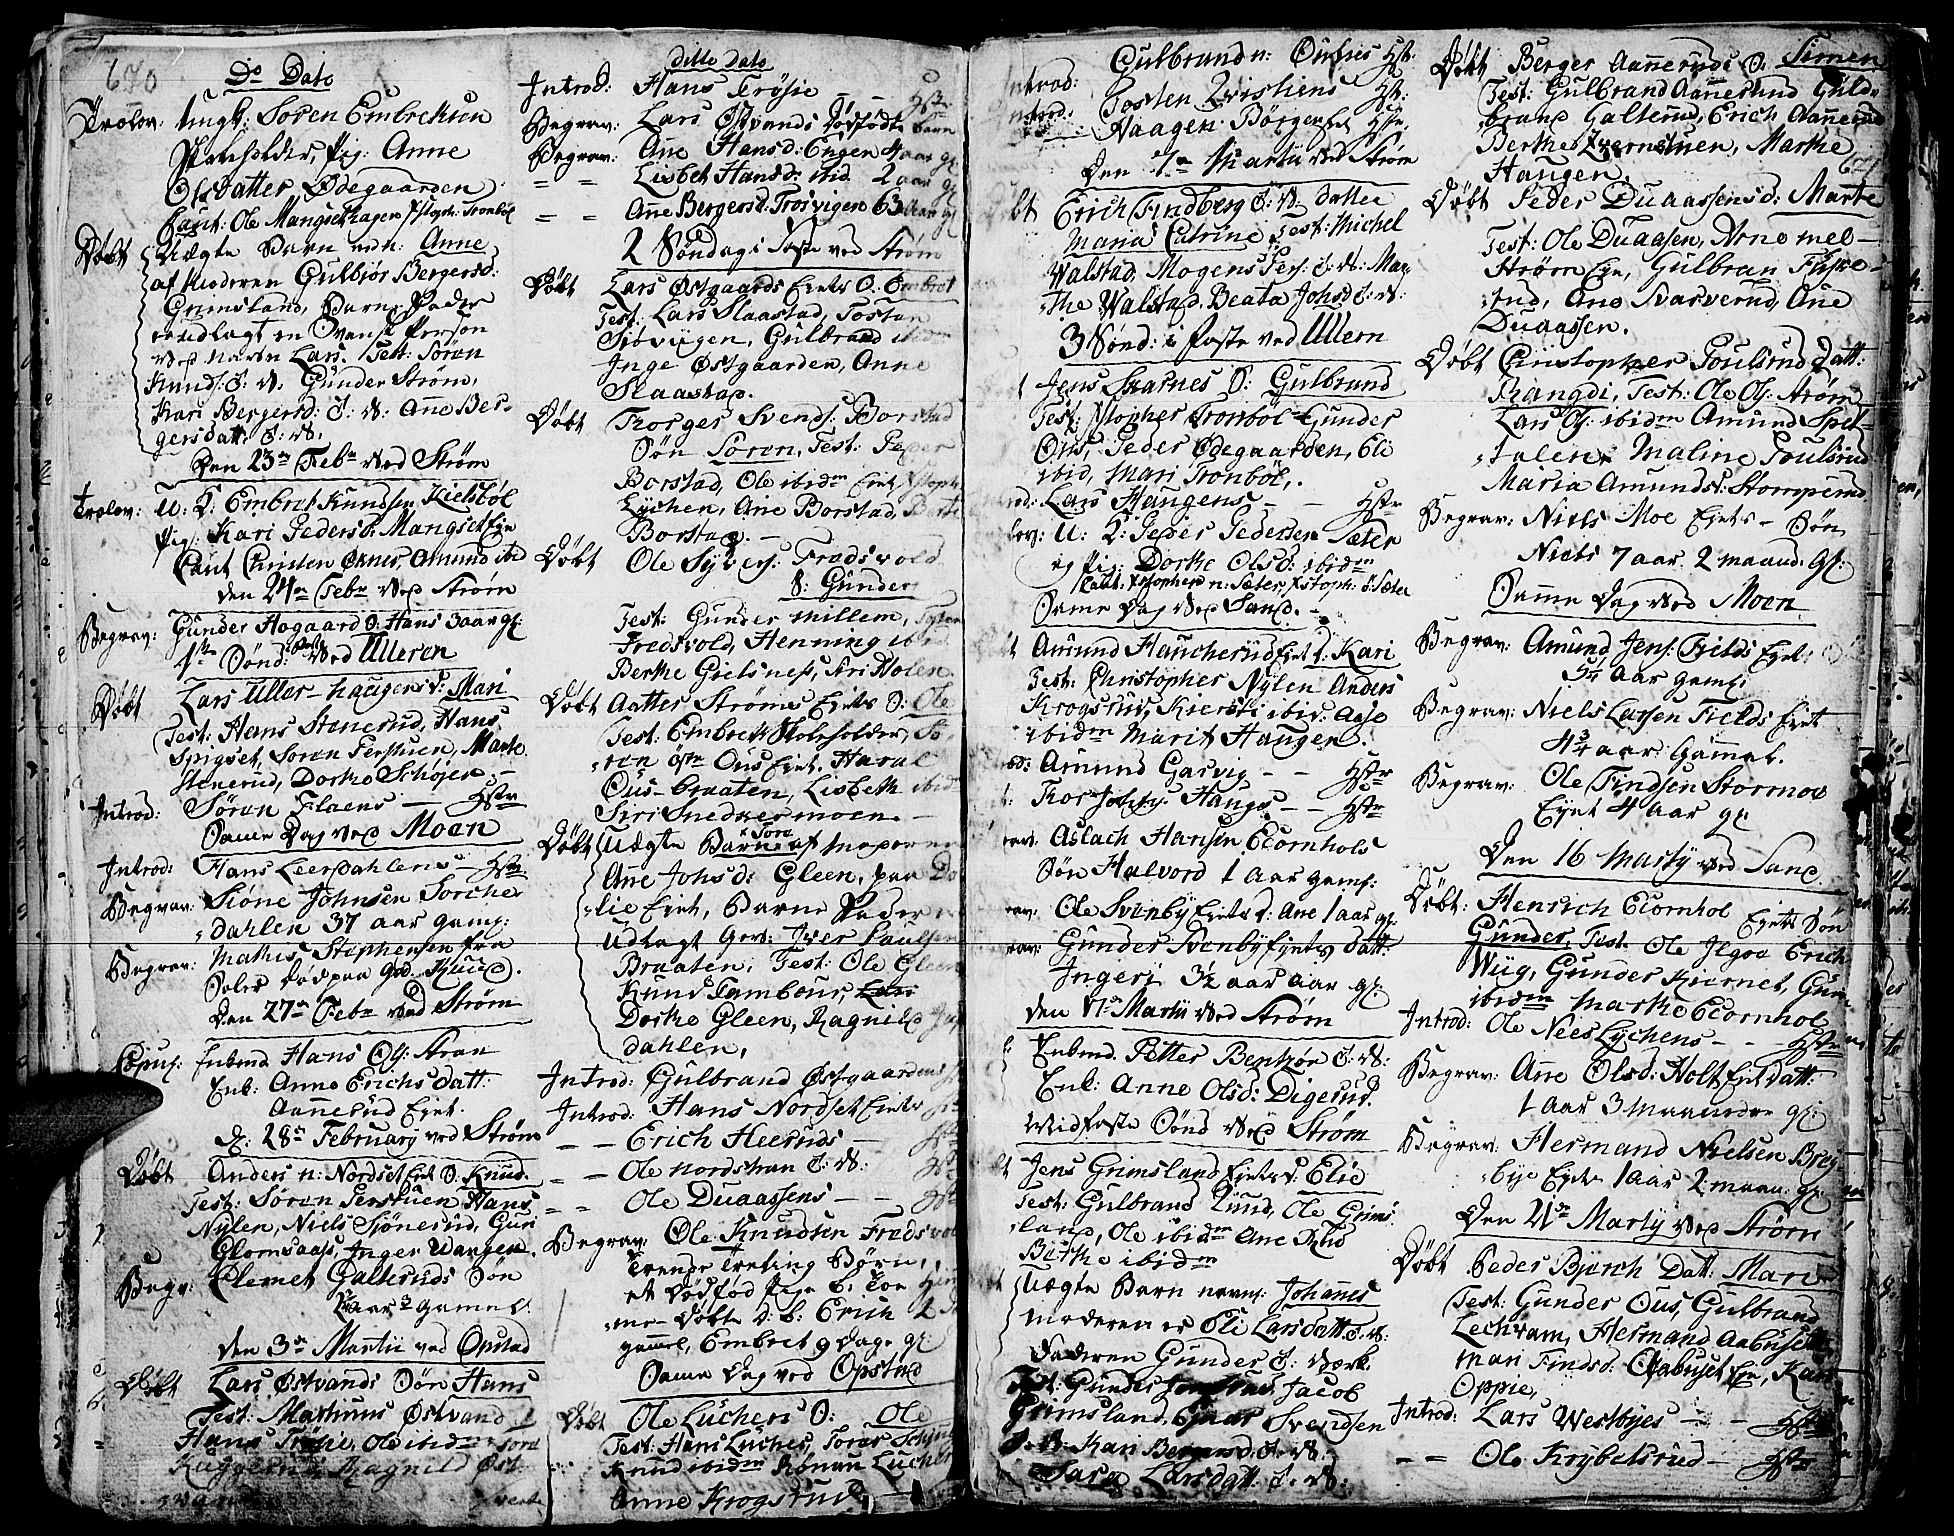 670
Do Dato
Trolov: Ungk: Søren Embrethsen
Pladsholder, Pig: Anne
Olsdatter Ødegaarden
Caut: Ole Mangsethagen, Xstoph: Tronbøl
Døbt Uægte Barn navn: Anne
af Moderen Gulbjør Bergersd:
Grimsland, Barne Fader
udlagt en Svensk Person
ved navn Lars. Test: Søren
Knuds: S: V. Gunder Strøm,
Kari Bergersd: S: V: Anne Ber-
gersdatt: S: V.
Den 23de Febr ved Strøm
Trolov: U: K: Embret Knudsen Kielsbøl
Pig: Kari Pedersd: Mangset Eje
Caut Christen Ousnes, Amund ibid
den 24de Febr ved Strøm
Begrav: Gunder Hogaard S: Hans 3 aar gl:
1ste Sønd: i Faste ved Ulleren
Døbt Lars Uller-haugens d: Mari
Test: Hans Stenerud, Hans
Spigset, Søren Perstuen, Marte
Stenerud, Dorthe Schøjen -
Introd: Søren Flaens — Hstr
Samme Dag ved Moen
Introd: Hans Leersdahlens Hstr
Begrav: Siøne Johnsen Torche
dahlen 37 aar gaml:
Begrav: Mathis Stephensen fra
Soler død paa Grd. Kuud.
Den 27de Febr ved Strøm
Copul: Enkemd Hans Ols: Stran
Enk: Anne Erichs datt:
Aannerud Ejet.
d: 28de February ved Strøm
Døbt Anders n: Nordset Ejet S: Knud.
Test: Søren Perstuen Hans
Nylen, Niels Siønerud, Guri
Glomsaas, Inger Wangen.
Begr: Clemet Galteruds Søn
gamel
den 3de Martii ved Opstad
Døbt Lars Østvands Søn Hans
Test: Martinus Østvand
Hans Trøsie, Ole ibidm Tore
Kuggerud, Ragnild Øst-
vand
ditto Dato
Introd: Hans Trøsie — — Hstr
Begrav: Lars Østvands dødfødte barn
Begrav: Ane Hansd: Engen 4 aar gl
= = Lisbet Hansdr ibid 2 aar gl
= = Anne Bergersd: Trosvigen 63 aar gl
2 Søndag i Faste ved Strøm
Døbt Lars Østgaards Ejets S: Embret
Test: Lars Slaastad, Tosten
Siøvigen, Gulbrand ibidm
Inge Østgaarden, Anne
Slaastad.
Døbt Torger Svends: Borstad
Søn Søren, Test: Peder
Borstad, Ole ibidm Ejet, Xstoph
Lychen, Ane Borstad, Berte
Borstad. -
Døbt Ole Sylves: Fredsvold
S: Gunder
Test: Gunder Millem,
Fredsvold, Henning ibid
Berthe Gielsness, Siri Holen
Døbt Aatter Strøms Ejets S: Ole
Test: Embreth Pladsholder, Sø-
ren østre Ous Ejet, Haral
Ous-braaten, Lisbeth ibid
Siri Snedkermoen. -
Døbt Uægte Barn Tore af Moderen
Anne Johsd: Gleen, paa
lie Ejet, Barne Fader
udlagt Gers: Iver Paulsen
Braaten, Test: Ole Gleen
Knud Tambour,
Dorthe Gleen, Ragnild
dahlen,
Introd: Gulbrand Østgaardens
Introd: Hans Nordset Ejets
- - Erich Heeruds —
- - Ole Nordstran S: V:
= = Ole Duaassens — —
Begrav: Ole Knudsen Fredsvol
Trende Trelling Børn,
et dødfød Pige b: Toe
me-døbte d: b: Erich 2
gammel, Embret 9 dage gl:
Samme Dag ved Opstad
Døbt Ole Luchers S: Ole
Test: Hans Luches, Torer
Knud ibidm Ronan Luches
Anne Krogsrud, —
Introd: Gulbrand n: Ousnes Hst:
Introd: Tosten Qvistiens Hst:
Introd: Haagen Børgens Hstr.
Den 7de Martii ved Strøm
Døbt Erich Findberg S: V: datter
Maria Catrine, Test: Michel
Walstad, Mogens Pers: S: V: Mar-
the Walstad, Beata Johsd: S: V:
3 Sønd: i Faste ved Ullern
Jens Skarnes S: Gulbrand
Test: Xstopher Tronbøl Gunder
Ous, Peder Ødegaarden, Eli
ibid, Mari Tronbøl,.
Introd: Lars Haugens — — Hstr
Trolov: U: K: Peder Pedersen Sæter
og Pig: Dorthe Olsd: ibidm
Caut: Xstopher n: Sæter, Xstoph: S: Sæter
Samme Dag ved Sand. -
Døbt Amund Haucherud Ejet d: Kari
Test: Christopher Nylen Anders
Krogsrud, Kiersti ibid: Aase
ibidm Marit Haugen.
Introd: Amund Garvig - - Hstr
Tor Hauge - - Hstr
Begrav: Aslach Hansen Ecornhols
Søn Halvord 1 aar gaml:
Begrav: Ole Svenby Ejets d: Ane 1 aar gl.
Begrav: Gunder Svenby Ejets datt:
Ingeri 3½ aar aar gl.
den 11de Martii ved Strøm
Enkemd. Petter Bentzøn S: V:
Enk: Anne Olsd: Digerud.
Midfaste Sønd ved Strøm
Døbt Jens Grimsland Ejets d: Elie
Test: Gulbrand Lund, Ole Grims-
land, Ole ibidm Ane
Birthe ibidm
Uægte Barn navnl: Johannes
Moderen er Eli Larsdatt S: V:
Faderen Gunder S: Værk.
Test: Gunder Jacob
Grimsland, Svendsen
S: V: Kari Bergersd: S: V:
Sara Larsdatt: S: V:
Døbt Berger Aannerudi S: Simen
Test: Gulbrand Aannerud Guld-
brand Galterud, Erich Aannerud
Berthe Qvernstuen, Marthe
Haugen.
671
Døbt Peder Duaassens d: Marte
Test: Ole Duaasen, Arne mel-
Strøm Eje, Gulbran Fiske-
rud, Ane Svarverud, Ane
Duaassen.
Døbt Christopher Poulsrud Datt:
Rangdi, Test: Ole Ols: Strøm
Lars Ols: ibidm Amund Spet-
talen, Maline Poulsrud
Maria Amundsd: Stomperud
Begrav: Niels Moe Ejets - Søn
Niels 7 aar 2 maand. Gl:
Samme Dag ved Moen
Begrav: Amund Jens: Fields Ejet
54 aar gaml:
Begrav: Niels Larsen Fields Ejet
43 aar: Gammel.
Begrav: Ole Findsen Stormoe
Ejet 4 aar gl:
Den 16 Martij ved Sand
Døbt: Henrich Ecornhol Ejets Søn
Gunder, Test. Ole Ilgoe Erich
Wiig, Gunder Kiernet, Gun-
ibidm Marthe Ecornhol
Introd: Ole Nees Lychens - - Hstr
Begrav: Anne Olsd: Holt Ejet datt:
1 aar 3 maaneder gl:
Begrav: Hermand Nielsen Brey-
bye Ejet 1 aar 2 maan: gl:
Den 21de Martij ved Strøm
Døbt Peder Bjørch Datt: Mari
Test: Gunder Ous, Gulbrand
Lechram, Hermand Aabuset
Mari Findsd: Aabuset Eje, Kari
Oppie,
Introd: Lars Westbyes — - Hstr
- = Ole Krybelsrud — Hstr